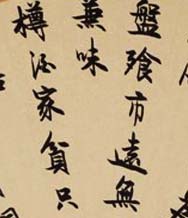 盤飧市遠無
兼味
樽酒家貧只